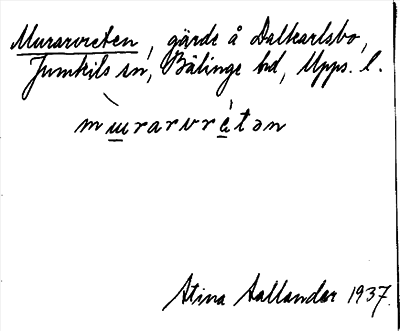 Murarvreten, gärde å Dalkarlsbo,
Jumkils sn, Bälinge hd, Upps. l.
mùrarvrétən
Stina Aallander 1937.